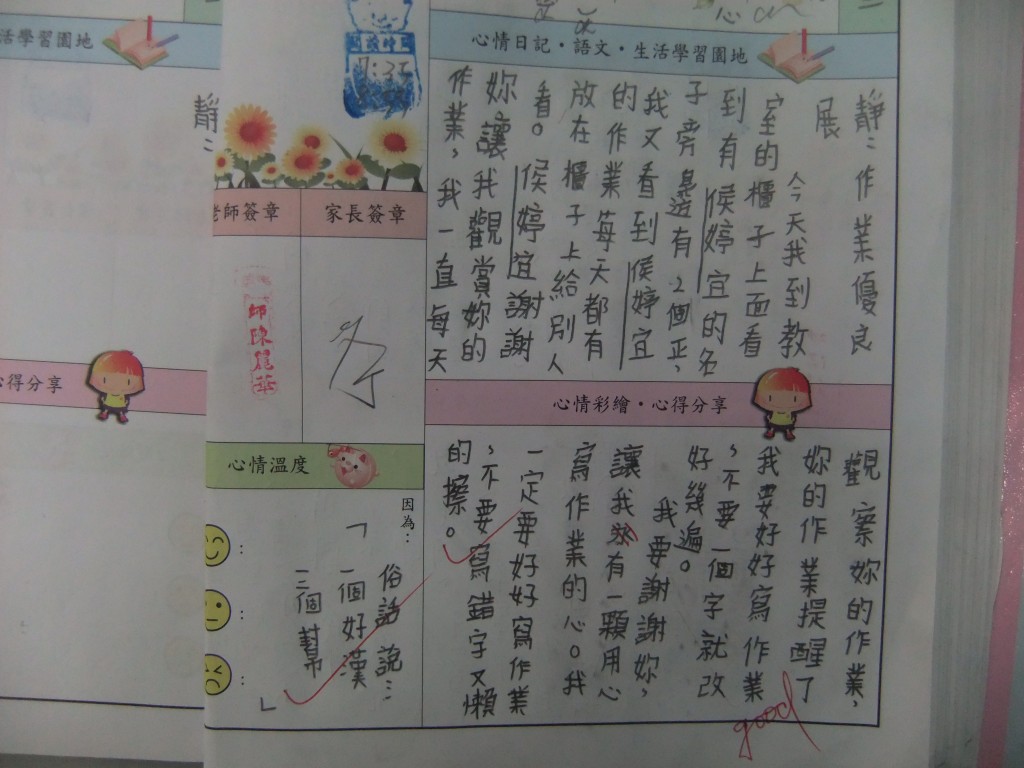 心情日記・語文・生活學習園地
靜:作業優良
展
今天我到教
室的櫃子上面看
到有侯婷宜的名
子旁邊有2個正,
我又看到侯婷宜
的作業每天都有
放在櫃子上給別人
看。侯婷宜謝謝
妳讓我觀賞妳的
作業,我一直每天
心情彩繪・心得分享
觀察妳的作業,
妳的作業提醒了
我要好好寫作業
,不要一個字就改
好幾遍。
我要謝謝妳,
讓我有一顆用心
寫作業的心。我
一定要好好寫作業
,不要寫錯字又懶
的擦。
good
老師簽章
家長簽章
師陳麗華
心情溫度
因為:
俗話說:
「一個好漢
三個幫
」
活學習園地
靜:
心得分享